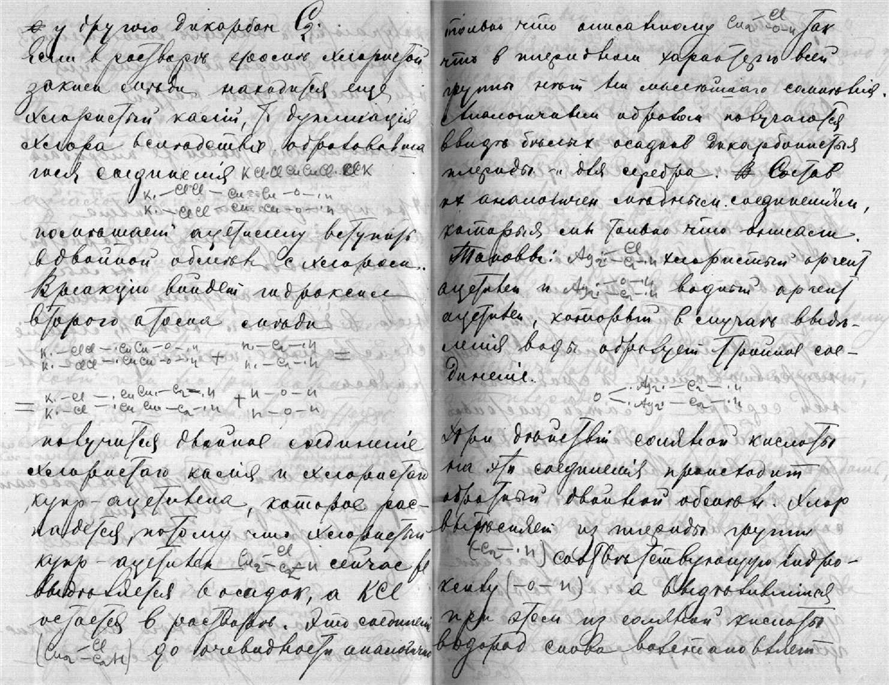 у другого дикарбон C₂.
если в растворѣ кромѣ хлористой
закиси мѣди находится еще
хлористый калiй, то дупликацiя
хлора вслѣдствiе образовавша
гося соединенiя KCl·ClCuCuCl·ClK
K·–ClCl–CuCu–O–·H
K·–ClCl·–CuCu–O–·H
помогаетъ ацетилену вступать
в двойной обмѣнъ с хлоромъ.
В реакцiю входитъ гидроксилъ
второго атома мѣди
K·–ClCl–·CuCu–O–·H + H·–C₂–·H =
K·–ClCl–·CuCu–O–·H H·–C₂–·H
= K·–Cl–·CuCu–C₂–·H + H–O–H
K·–Cl–·CuCu–C₂–·H H–O–H
получится двойное соединенiе
хлористаго калiя и хлористаго
купр-ацетилена, которое рас-
падется, потому что хлористый
купр-ацетилен Cu₂–Cl–C₂–H сейчас же
выдѣляется в осадок, а KCl
остается в растворѣ. Это соединенiе
(Cu₂–Cl–C₂H) до очевидности аналогично
только что описанному Cu₂–Cl–O–H так
что в хлоридном характерѣ всей
группы нѣт ни малѣйшаго сомнѣнiя.
Аналогичным образом получаются
ввидѣ бѣлых осадков дикарбонистыя
хлориды – для серебра. Состав
их аналогичен мѣдным соединенiям,
которыя мы только что описали.
Таковы: Ag₂–Cl–C₂–H хлористый аргент
ацетилен и Ag₂–O–H–C₂–H водный аргент
ацетилен, который в случаѣ выдѣ-
ленiя воды образует тройное сое-
диненiе.
O < ·Ag₂·–C₂–·H
·Ag₂·–C₂–·H
При дѣйствiи соляной кислоты
на эти соединенiя происходит
обратный двойной обмѣнъ. Хлор
вытѣсняет из хлориды группу
(–C₂–·H) соотвѣтствующую гидро-
ксилу (–O–H) а выдѣлившiйся
при этом из соляной кислоты
водород снова возстановляет